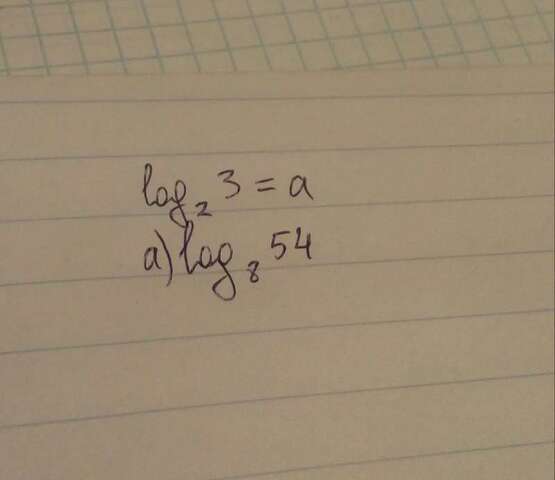 log₂ 3 = a
a) log₈ 54